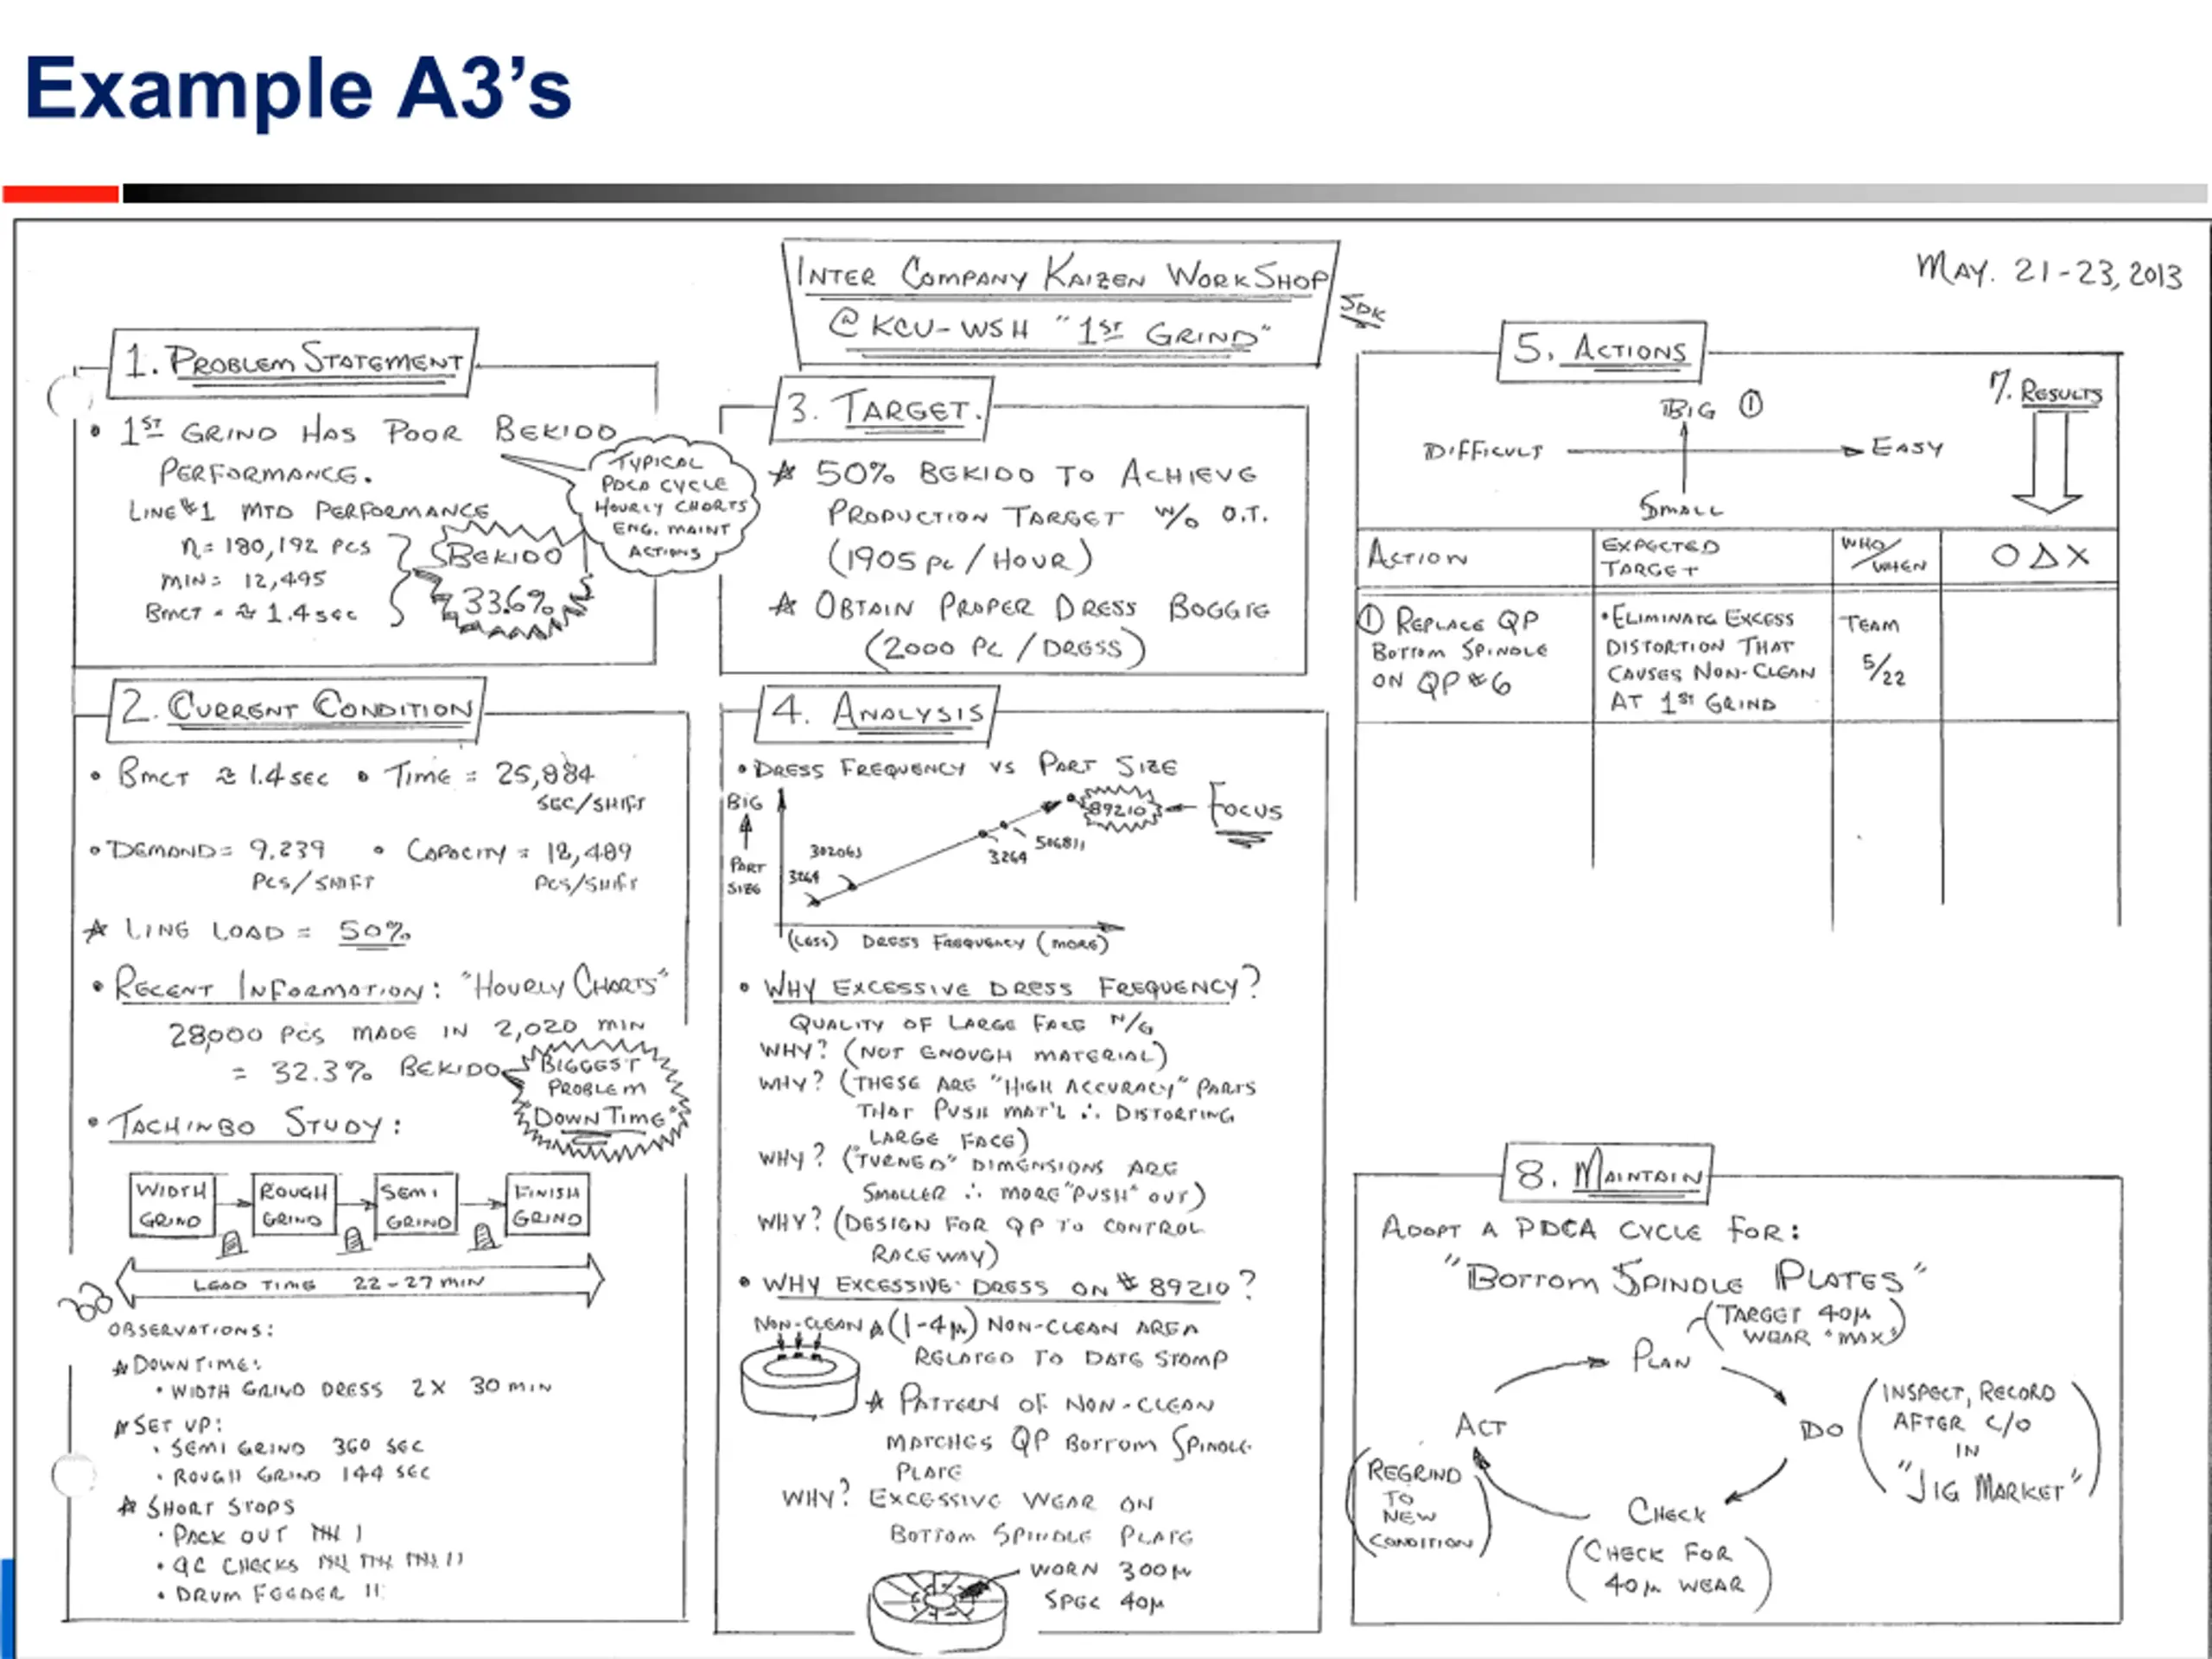 Example A3's
INTER COMPANY KAIZEN WORKSHOP
@ KCU-WSH "1ST GRIND"
SDK
MAY. 21-23, 2013
1. PROBLEM STATEMENT
• 1ST GRIND HAS POOR BEKIDO
PERFORMANCE.
LINE #1 MTD PERFORMANCE
n= 180,192 PCS
MIN= 12,495
BMCT = ≈ 1.4 SEC
BEKIDO
33.6%
TYPICAL
PDCA CYCLE
HOURLY CHARTS
ENG. MAINT
ACTIONS
2. CURRENT CONDITION
• BMCT ≈ 1.4 SEC • TIME = 25,884
SEC/SHIFT
• DEMAND = 9,239 • CAPACITY = 18,489
PCS/SHIFT PCS/SHIFT
☆ LINE LOAD = 50%
• RECENT INFORMATION: "HOURLY CHARTS"
28,000 PCS MADE IN 2,020 MIN
= 32.3% BEKIDO
BIGGEST
PROBLEM
"DOWNTIME"
• TACHINBO STUDY:
WIDTH GRIND
ROUGH GRIND
SEMI GRIND
FINISH GRIND
LEAD TIME 22-27 MIN
OBSERVATIONS:
☆ DOWNTIME:
• WIDTH GRIND DRESS 2X 30 MIN
☆ SET UP:
• SEMI GRIND 360 SEC
• ROUGH GRIND 144 SEC
☆ SHORT STOPS
• PACK OUT
• QC CHECKS
• DRUM FEEDER II
3. TARGET.
☆ 50% BEKIDO TO ACHIEVE
PRODUCTION TARGET W/O O.T.
(1905 PC / HOUR)
☆ OBTAIN PROPER DRESS BOGGIE
(2000 PC / DRESS)
4. ANALYSIS
• DRESS FREQUENCY VS PART SIZE
BIG
PART
SIZE
3264
302063
3264
506811
89210
FOCUS
(LESS) DRESS FREQUENCY (MORE)
• WHY EXCESSIVE DRESS FREQUENCY?
QUALITY OF LARGE FACE N/G
WHY? (NOT ENOUGH MATERIAL)
WHY? (THESE ARE "HIGH ACCURACY" PARTS
THAT PUSH MAT'L ∴ DISTORTING
LARGE FACE)
WHY? ("TURNED" DIMENSIONS ARE
SMALLER ∴ MORE "PUSH" OUT)
WHY? (DESIGN FOR QP TO CONTROL
RACEWAY)
• WHY EXCESSIVE DRESS ON # 89210?
NON-CLEAN ☆ (1-4μ) NON-CLEAN AREA
RELATED TO DATE STAMP
☆ PATTERN OF NON-CLEAN
MATCHES QP BOTTOM SPINDLE
PLATE
WHY? EXCESSIVE WEAR ON
BOTTOM SPINDLE PLATE
WORN 300μ
SPEC 40μ
5. ACTIONS
7. RESULTS
BIG ①
DIFFICULT EASY
SMALL
ACTION
EXPECTED
TARGET
WHO/WHEN
O Δ X
① REPLACE QP
BOTTOM SPINDLE
ON QP #6
• ELIMINATE EXCESS
DISTORTION THAT
CAUSES NON-CLEAN
AT 1ST GRIND
TEAM
5/22
8. MAINTAIN
ADOPT A PDCA CYCLE FOR:
"BOTTOM SPINDLE PLATES"
(TARGET 40μ
WEAR "MAX")
PLAN
DO
(INSPECT, RECORD
AFTER C/O
IN
"JIG MARKET")
CHECK
(CHECK FOR
40μ WEAR)
ACT
(REGRIND
TO
NEW
CONDITION)